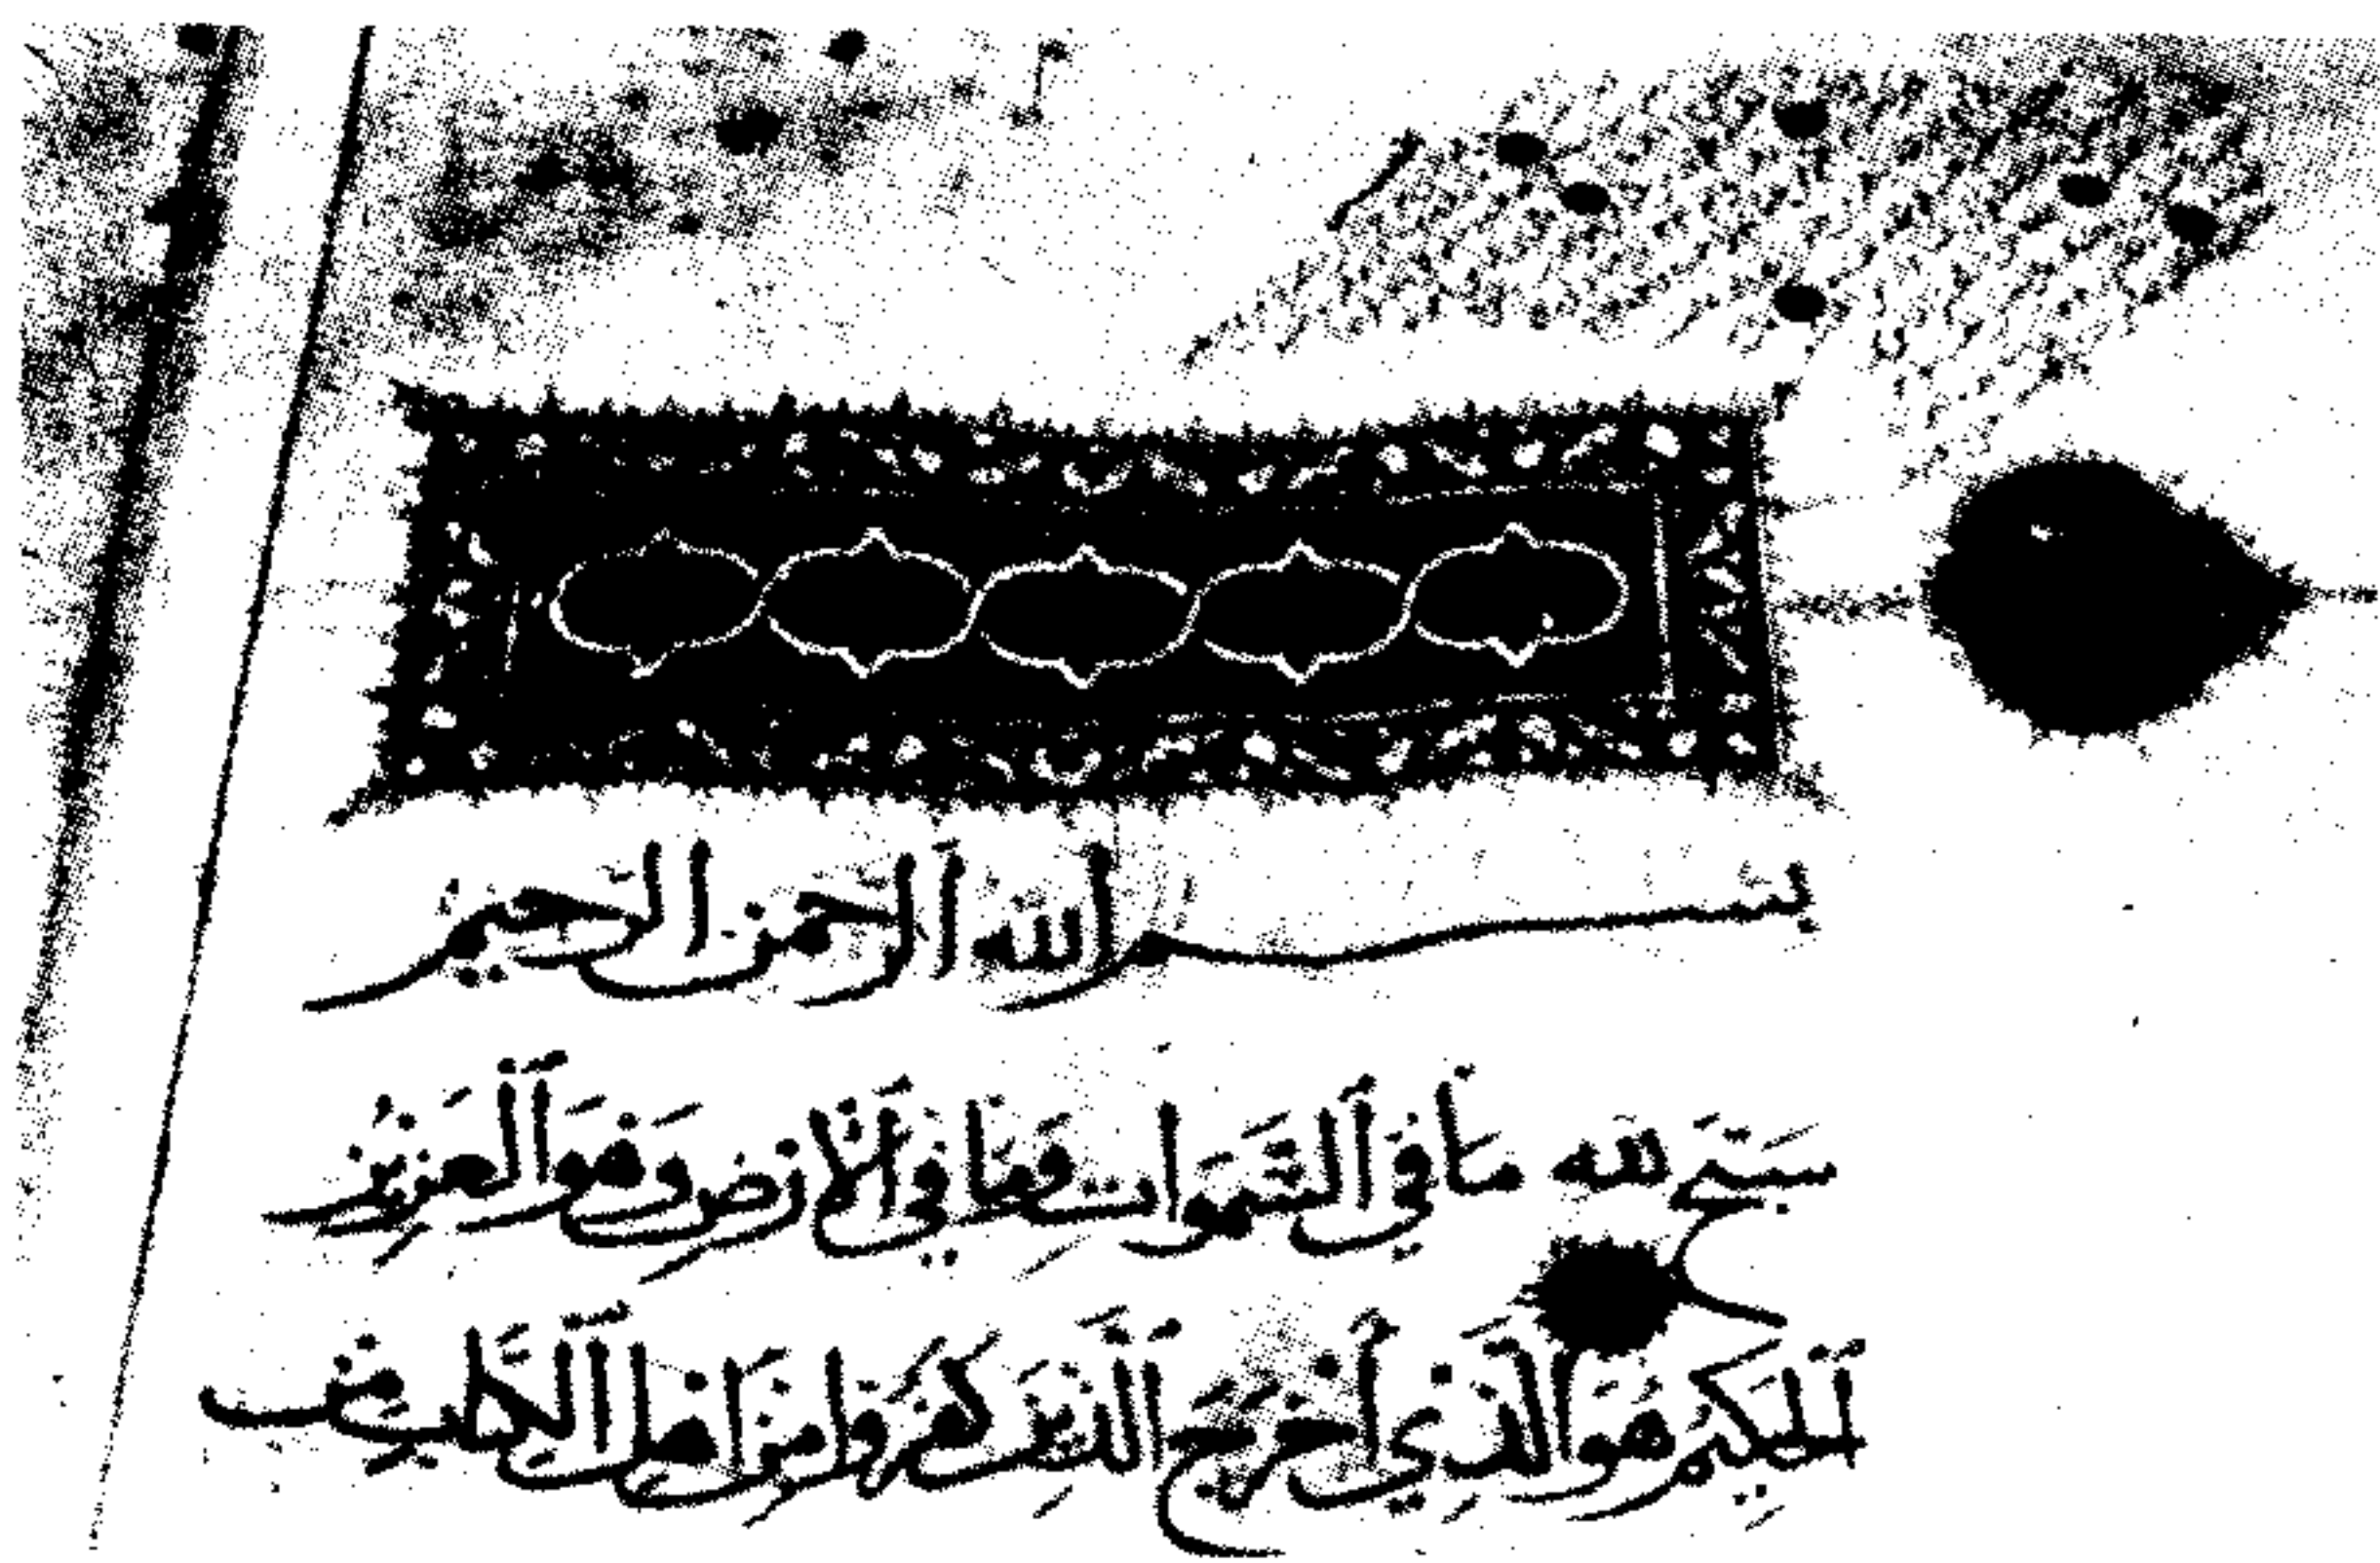 بسم الله الرحمن الرحيم
سبح لله ما في السموات وما في الأرض وهو العزيز
الحكيم هو الذي أخرج الذين كفروا من أهل الكتاب من